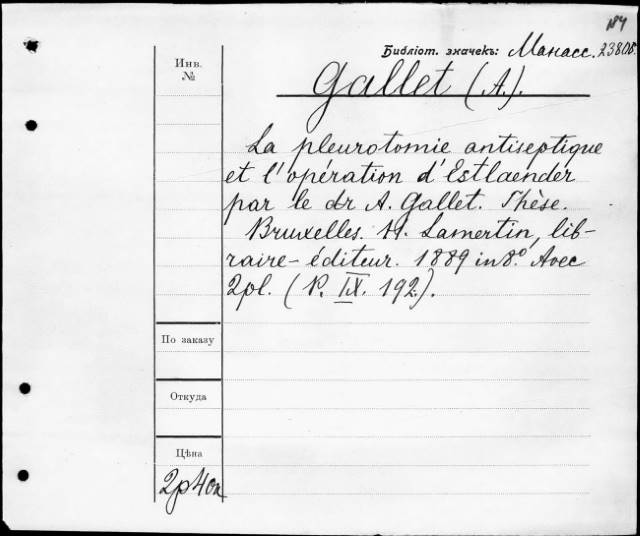 №4
Библіот. значекъ: Манасс. 23808.
Инв.
№
Gallet (A.).
La pleurotomie antiseptique
et l'opération d'Estlaender
par le dr A. Gallet. Thèse.
Bruxelles. H. Lamertin, lib-
raire-éditeur. 1889 in 8.º Avec
2 pl. (P. IX. 192.).
По заказу
Откуда
Цѣна
2р 40к